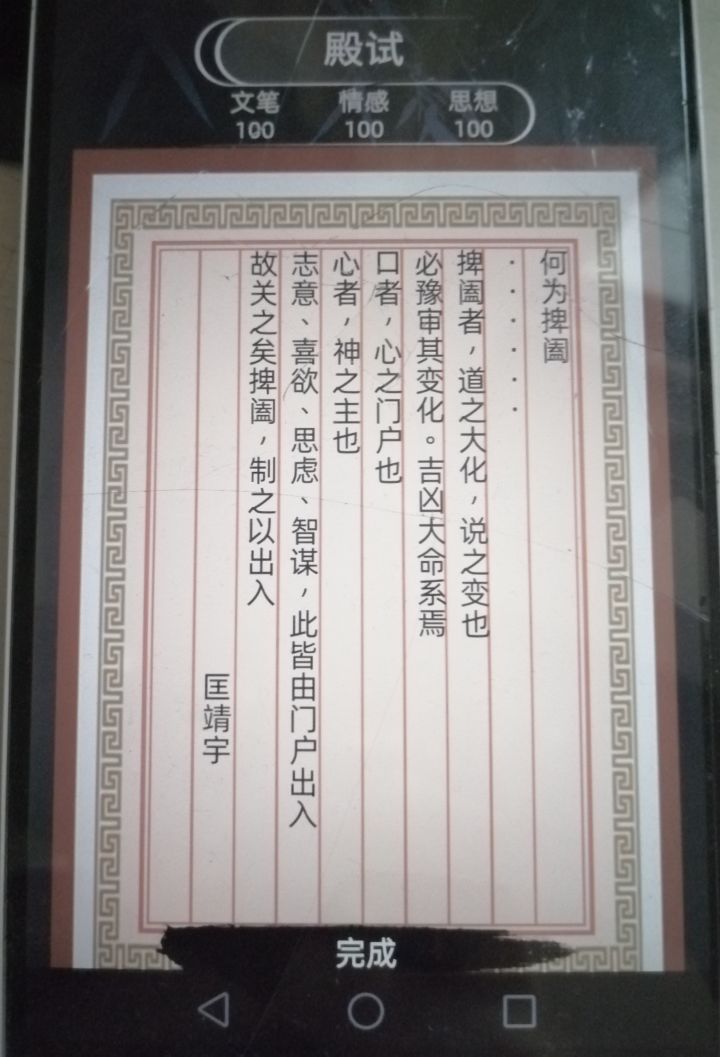 殿试
文笔 情感 思想
100 100 100
何为捭阖
······
捭阖者，道之大化，说之变也
必豫审其变化。吉凶大命系焉
口者，心之门户也
心者，神之主也
志意、喜欲、思虑、智谋，此皆由门户出入
故关之矣捭阖，制之以出入
匡靖宇
完成